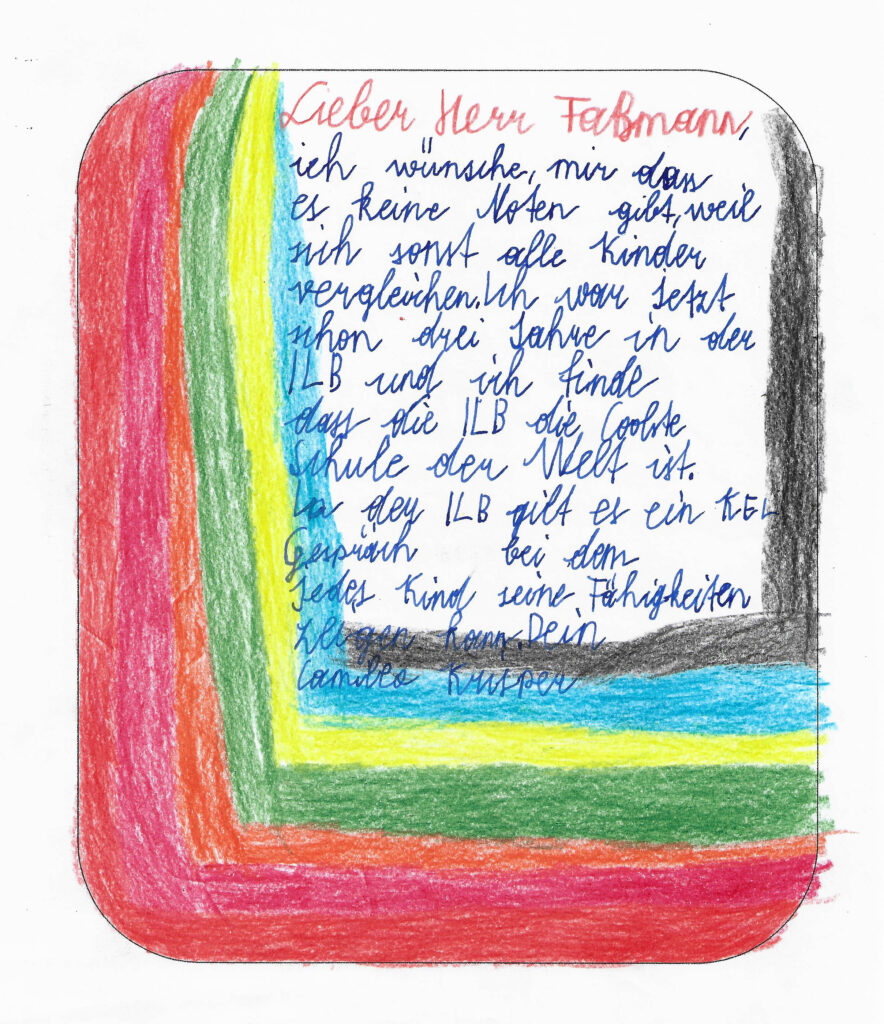 Lieber Herr Faßmann,
ich wünsche, mir dass
es keine Noten gibt, weil
sich sonst alle Kinder
vergleichen. Ich war jetzt
schon drei Jahre in der
ILB und ich finde
dass die ILB die Coolste
Schule der Welt ist.
In der ILB gilt es ein KEL
Gespräch bei dem
Jedes Kind seine Fähigkeiten
zeigen kann. Dein
Krisper